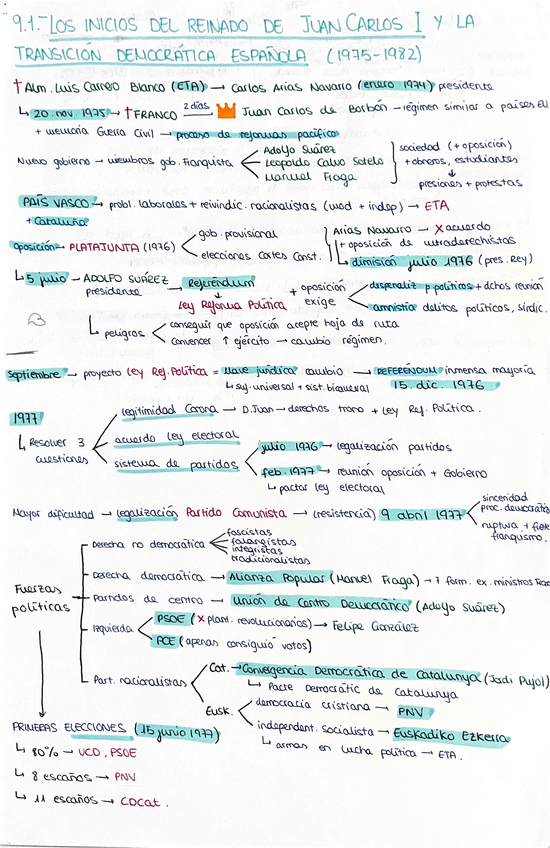 9.1.- LOS INICIOS DEL REINADO DE JUAN CARLOS I Y LA
TRANSICIÓN DEMOCRÁTICA ESPAÑOLA (1975-1982)
† Alm. Luis Carrero Blanco (ETA) → Carlos Arias Navarro (enero 1974) presidente
↳ 20 nov 1975 → † FRANCO 2 días Juan Carlos de Borbón - régimen similar a países EU
+ memoria Guerra Civil → proceso de reformas pacífico
Nuevo gobierno → miembros gob. Franquista
Adolfo Suárez
Leopoldo Calvo Sotelo
Manuel Fraga
sociedad (+ oposición)
+ obreros, estudiantes
↓
presiones + protestas
PAÍS VASCO → probl. laborales + reivindic. nacionalistas (mod + indep) → ETA
+ Cataluña
oposición → PLATAJUNTA (1976)
gob. provisional
elecciones Cortes Const.
Arias Navarro → X acuerdo
+ oposición de ultraderechistas
↳ dimisión julio 1976 (pres. Rey)
↳ 5 julio → ADOLFO SUÁREZ presidente → Referéndum
↓
Ley Reforma Política
+ oposición exige
despenaliz p. políticos + dchos reunión
amnistía delitos políticos, sindic.
↳ peligros
conseguir que oposición acepte hoja de ruta
convencer ↑ ejército → cambio régimen.
septiembre → proyecto Ley Ref. Política = llave jurídica cambio → REFERÉNDUM inmensa mayoría
↳ suf. universal + sist. bicameral 15. dic. 1976
1977
↳ Resolver 3 cuestiones
legitimidad Corona → D. Juan → derechos trono + Ley Ref. Política.
acuerdo ley electoral
sistema de partidos
julio 1976 → legalización partidos
feb. 1977 → reunión oposición + Gobierno
↳ pactar ley electoral
Mayor dificultad → legalización Partido Comunista → (resistencia) 9 abril 1977
sinceridad
proc. democrático
ruptura + franquismo.
Fuerzas políticas
Derecha no democrática
fascistas
falangistas
integristas
tradicionalistas
Derecha democrática → Alianza Popular (Manuel Fraga) → 7 form. ex. ministros
Partidos de centro → Unión de Centro Democrático (Adolfo Suárez)
Izquierda
PSOE (X plant. revolucionarios) → Felipe González
PCE (apenas consiguió votos)
Part. nacionalistas
Cat. → Convergencia Democrática de Catalunya (Jordi Pujol)
↳ Pacte Democràtic de Catalunya
Eusk.
democracia cristiana → PNV
independent. socialista → Euskadiko Ezkerra
↳ armas en lucha política → ETA.
PRIMERAS ELECCIONES (15 junio 1977)
↳ 80% → UCD, PSOE
↳ 8 escaños → PNV
↳ 11 escaños → CDCat.